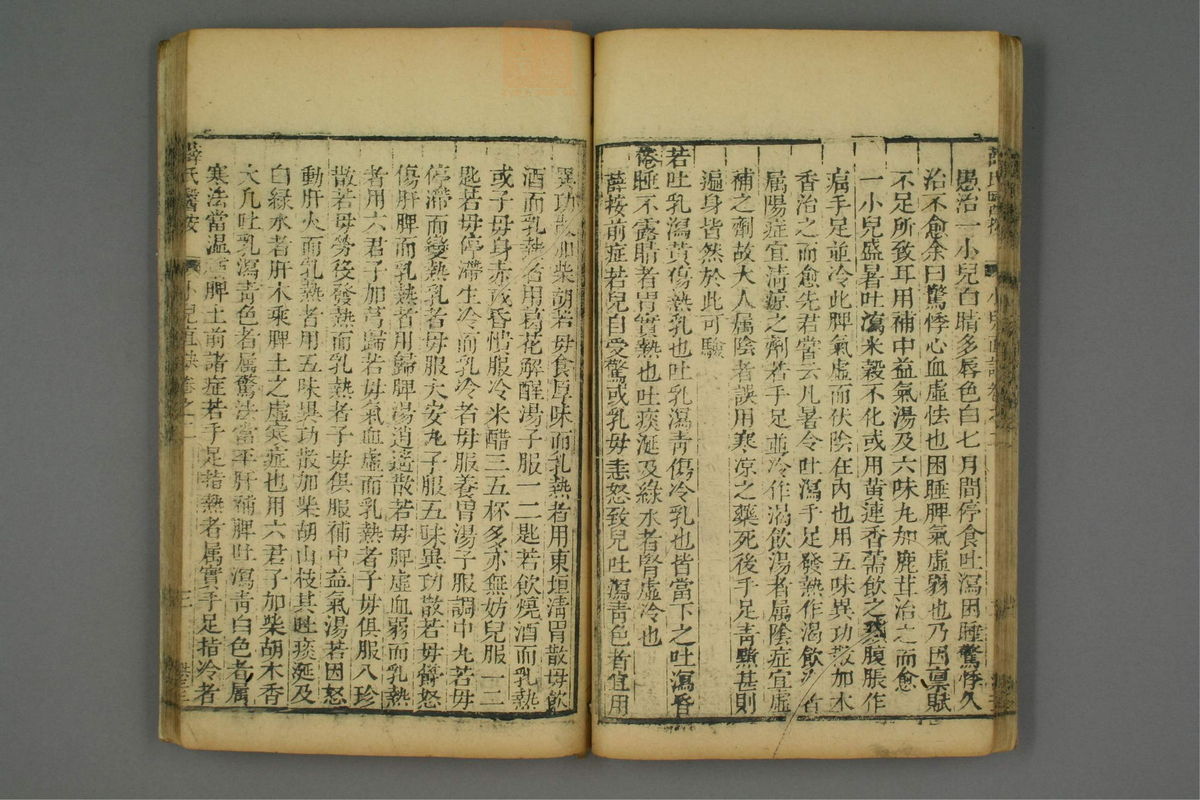 愚治一小兒白睛多唇色白七月間停食吐瀉困睡驚悸久
治不愈余曰驚悸心血虛怯也困睡脾氣虛弱也乃因稟賦
不足所致耳用補中益氣湯及六味丸加鹿茸治之而愈
一小兒盛暑吐瀉米穀不化或用黃連香薷飲之腹脹作
痛手足並冷此脾氣虛而伏陰在內也用五味異功散加木
香治之而愈先君嘗云凡暑令吐瀉手足發熱作渴飲冷者
属陽症宜清凉之劑若手足並冷作渴飲湯者属陰症宜
補之劑故大人属陰者誤用寒凉之藥死後手足青黯甚則
遍身皆然於此可驗
若吐乳瀉黃傷熱乳也吐乳瀉青傷冷乳也皆當下之吐瀉昏
倦睡不露睛者胃實熱也吐痰涎及綠水者胃虛冷也
薛按前症若兒自受驚或乳母恚怒致兒吐瀉青色者宜用
異功散加柴胡若母食厚味而乳熱者用東垣清胃散母飲
酒而乳熱者用葛花解酲湯子服一二匙若飲燒酒而乳熱
或子母身赤或昏憒服冷米醋三五杯多亦無妨兒服一二
匙若母停滯生冷而乳冷者母服養胃湯子服調中丸若母
停滯而變熱乳者母服大安丸子服五味異功散若母鬱怒
傷肝脾而乳熱者用歸脾湯逍遥散若母脾虛血弱而乳熱
者用六君子加芎歸若母氣血虛而乳熱者子母俱服八珍
散若母勞役發熱而乳熱者子母俱服補中益氣湯若因怒
動肝火而乳熱者用五味異功散加柴胡山枝其吐痰涎及
白綠水者肝木乘脾土之虛寒症也用六君子加柴胡木香
大凡吐乳瀉青色者属驚法當平肝補脾吐瀉青白色者属
寒法當温補脾土前諸症若手足指熱者属實手足指冷者
薛氏醫按 小兒直訣卷之二